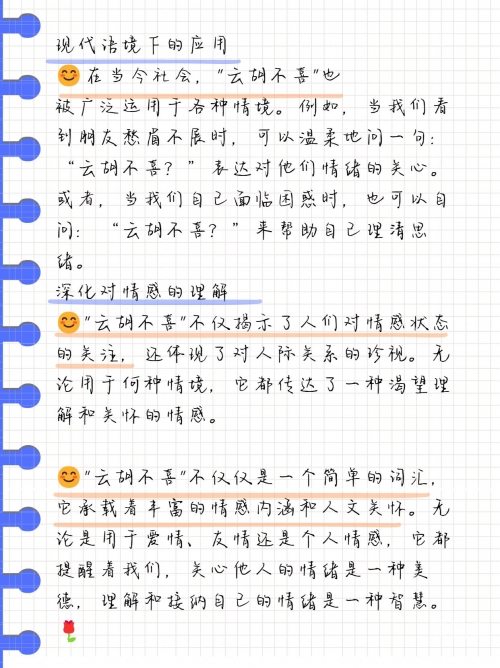 现代语境下的应用
在当今社会，"云胡不喜"也
被广泛运用于各种情境。例如，当我们看
到朋友愁眉不展时，可以温柔地问一句：
“云胡不喜？”表达对他们情绪的关心。
或者，当我们自己面临困惑时，也可以自
问：“云胡不喜？”来帮助自己理清思
绪。
深化对情感的理解
"云胡不喜"不仅揭示了人们对情感状态
的关注，还体现了对人际关系的珍视。无
论用于何种情境，它都传达了一种渴望理
解和关怀的情感。
"云胡不喜"不仅仅是一个简单的词汇，
它承载着丰富的情感内涵和人文关怀。无
论是用于爱情、友情还是个人情感，它都
提醒着我们，关心他人的情绪是一种美
德，理解和接纳自己的情绪是一种智慧。